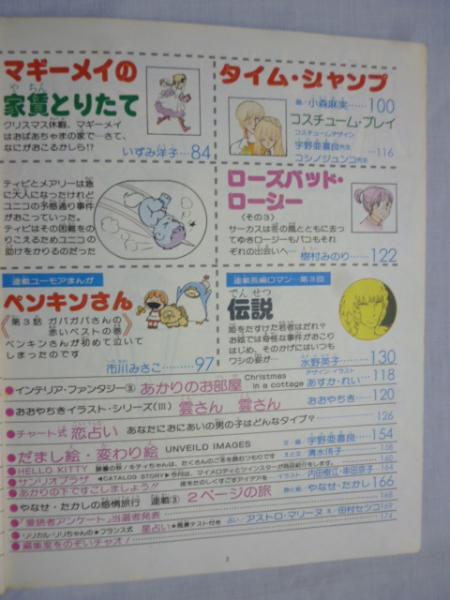 マギーメイの
やちん
家賃とりたて
クリスマス休暇、マギーメイ
はおばあちゃまの家で…さて、
なにがおこるかしら!?
いずみ洋子…84
タイム・ジャンプ
小森麻実……100
コスチューム・プレイ
コスチュームデザイン
宇野亜喜良先生
コシノジュンコ先生
…116
ティビとメアリーは急
に大人になったけれど
ユニコの予感通り事件
がおこっていった。
ティビはその困難をの
りこえるためユニコの
助けをかりるのだった
ローズバッド・
ロージー
(その3)
サーカスは冬の風とともに去っ
てゆきロージーもパコもそれ
ぞれの出会いへ…
樹村みのり……122
連載ユーモアまんが
ペンキンさん
《第3話 ガバガバさんの
赤いベストの巻》
ペンキンさんが初めて泣いて
しまったのです
市川みさこ……97
連載長編ロマン…第3回
でんせつ
伝説
姫をたすけた若者はだれ?
お城では奇怪な事件がおこり
はじめ、そのかげにはいつも
ワシの姿が…
水野英子……130
●インテリア・ファンタジー③ あかりのお部屋 Christmas in a cottage
デザイン イラスト
あすか・れい…118
●おおやちきイラスト・シリーズ(III) 雲さん 雲さん
おおやちき……120
●チャート式 恋占い あなたにおにあいの男の子はどんなタイプ?
126
●だまし絵・変わり絵 UNVEILD IMAGES
宇野亜喜良…154
●HELLO KITTY
158
●サンリオプラザ ◀CATALOG STORY▶
●あかりの下ですごしましょうガ
●やなせ・たかしの感情旅行 連載③ 2ページの旅
やなせ・たかし166
●「愛読者アンケート」当選者発表
●リリカル・リリちゃんの★フランス式 星占い
アストロ・マリーヌ
田村セツコ
174
●編集室をのぞいチャオ!
3